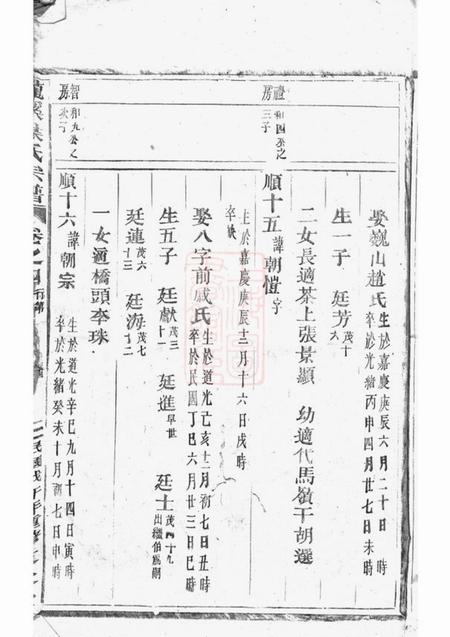 娶巍山趙氏 生於嘉慶庚辰六月二十日時
卒於光緒丙申四月廿七日未時
生一子 廷芳 茂十六
二女長適茶上張景顯 幼適代馬嶺干胡選
禮房 和四公之三子
順十五 諱朝愷 字
生於嘉慶庚辰十二月十六日戌時
卒缺
娶八字前戚氏 生於道光己亥十二月初七日丑時
卒於民國丁巳六月廿三日巳時
生五子 廷獻 茂三十一 廷進 早世 廷士 茂四十九 出繼伯爲嗣
廷連 茂六十三 廷海 茂七十二
一女適橋頭李珠
智房 和九公之次子
順十六 諱朝宗 生於道光辛巳九月十四日寅時
卒於光緒癸未十月初七日申時
氏宗譜 卷之四 行第
民國戊午年重修